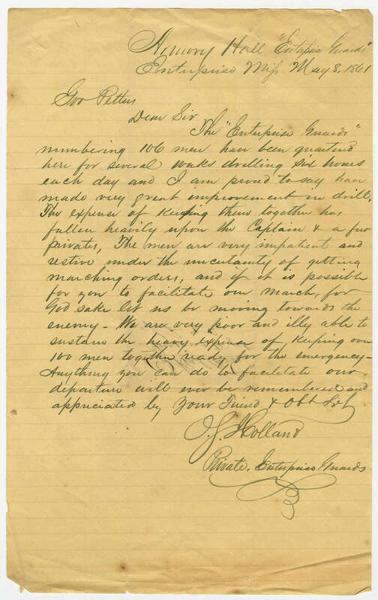 Armory Hall "Enterprise Guards"
Enterprise Miss May 8, 1861
Gov Pettus
Dear Sir
The "Enterprise Guards"
numbering 106 men have been quartered
here for several weeks drilling six hours
each day and I am proud to say have
made very great improvement in drill.
The expense of keeping them together has
fallen heavily upon the Captain & a few
privates, The men are very impatient and
restive under the uncertainty of getting
marching orders, and if it is possible
for you to facilitate our march, for
God sake let us be moving towards the
enemy - We are very poor and illy able to
sustain the heavy expense of keeping over
100 men together ready for the emergency -
Anything you can do to facilitate our
departure will ever be remembered and
appreciated by Your Friend & Obt Svt
Holland
Private, Enterprise Guards